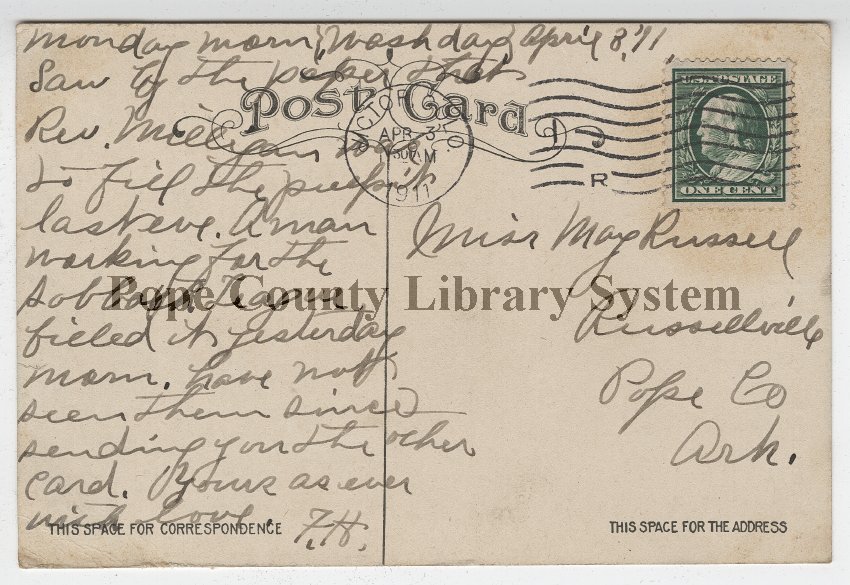 Monday morn, Washday, April 3, '11,
Saw by the paper that
Rev. Milligan was
to fill the pulpit
last eve. A man
working for the
Sabbath
filled it yesterday
morn. have not
seen them since
sending you the other
card. Yours as ever
with love. F.H.
Post Card
VICTOR COLO.
APR 3
30 AM
1911
R
U.S. POSTAGE
ONE CENT
Miss May Russell
Russellville
Pope Co
Ark.
Pope County Library System
THIS SPACE FOR CORRESPONDENCE
THIS SPACE FOR THE ADDRESS